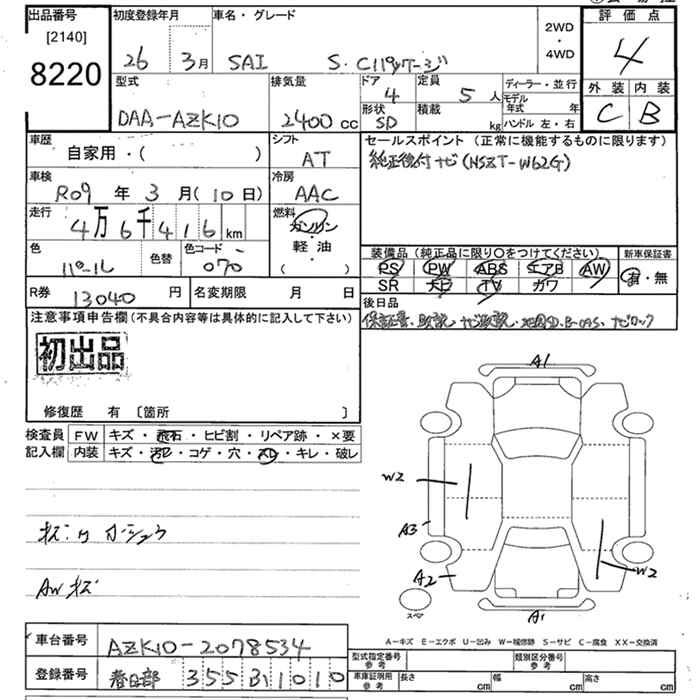 出品番号 初度登録年月 車名・グレード 2WD・4WD 評価点
[2140]
8220 26年 3月 SAI S・Cパッケージ 4
型式 排気量 ドア 4 定員 5人 ディーラー・並行 外装 内装
DAA-AZK10 2400cc 形状 SD 積載 kg モデル年式 年 ハンドル 左・右 C B
車歴 自家用・( ) シフト AT セールスポイント(正常に機能するものに限ります)
純正後付ナビ(NSZT-W62G)
車検 R09年 3月(10日) 冷房 AAC
走行 4万6千416km 燃料 ガソリン・軽油・( )
色 パール 色替 色コード 070
装備品(純正品に限り○をつけてください) 新車保証書
PS PW ABS エアB AW 有・無
SR ナビ TV カワ
R券 13040円 名変期限 月 日
後日品
保証書、取説、ナビ取説、地図SD、B-CAS、ナビロック
注意事項申告欄(不具合内容等は具体的に記入して下さい)
初出品
修復歴 有 〔箇所 〕
検査員 FW キズ・飛石・ヒビ割・リペア跡・×要
記入欄 内装 キズ・汚レ・コゲ・穴・スレ・キレ・破レ
A1
W2
A3
A2
W2
A1
スペア
AWキズ
A-キズ E-エクボ U-凹み W-補修跡 S-サビ C-腐食 XX-交換済
車台番号 AZK10-2078534
型式指定番号 参考 類別区分番号 参考
登録番号 春日部 355 ひ 1010
車庫証明用 参考 長さ cm 幅 cm 高さ cm